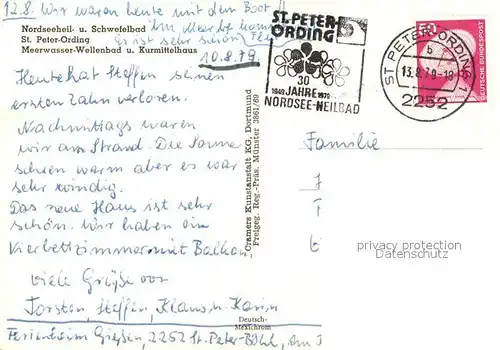 12.8. Wir waren heute mit dem Boot
Nordseeheil- u. Schwefelbad
St. Peter-Ording
Es ist sehr schön
Meerwasser-Wellenbad u. Kurmittelhaus
10.8.79
Heute hat Steffen seinen
ersten Zahn verloren.
Nachmittags waren
wir am Strand. Die Sonne
schien warm aber es war
sehr windig.
Das neue Haus ist sehr
schön. Wir haben ein
Vierbettzimmer mit Balkon,
viele Grüße von
Torsten, Steffen, Klaus u. Karin
Deutsch-
Mexichrom
Ferienheim Gießen, 2252 St. Peter-Böhl,
Cramers Kunstanstalt KG, Dortmund
Freigeg. Reg.-Präs. Münster 3861/69
ST. PETER-
ORDING
30
1949 JAHRE 1979
NORDSEE-HEILBAD
ST PETER-ORDING 1
b
13.8.79-18
2252
50
DEUTSCHE BUNDESPOST
Familie
privacy protection
Datenschutz